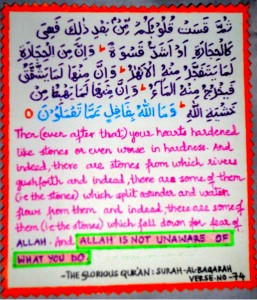 ثُمَّ قَسَتْ قُلُوبُكُمْ مِّنْ بَعْدِ ذٰلِكَ فَهِىَ
كَالْحِجَارَةِ اَوْ اَشَدُّ قَسْوَةً ؕ وَاِنَّ مِنَ الْحِجَارَةِ
لَمَا يَتَفَجَّرُ مِنْهُ الْاَنْهٰرُ ؕ وَاِنَّ مِنْهَا لَمَا يَشَّقَّقُ
فَيَخْرُجُ مِنْهُ الْمَآءُ ؕ وَاِنَّ مِنْهَا لَمَا يَهْبِطُ مِنْ
خَشْيَةِ اللّٰهِ ؕ وَمَا اللّٰهُ بِغَافِلٍ عَمَّا تَعْمَلُوْنَ
Then (even after that) your hearts hardened
like stones or even worse in hardness. And
indeed, there are stones from which rivers
gush forth and indeed, there are some of them
(i.e the stones) which split asunder and water
flows from them and indeed, there are some of
them (i.e the stones) which fall down for fear of
ALLAH. And ALLAH IS NOT UNAWARE OF
WHAT YOU DO.
-THE GLORIOUS QUR'AN: SURAH-AL-BAQARAH
VERSE-NO-74